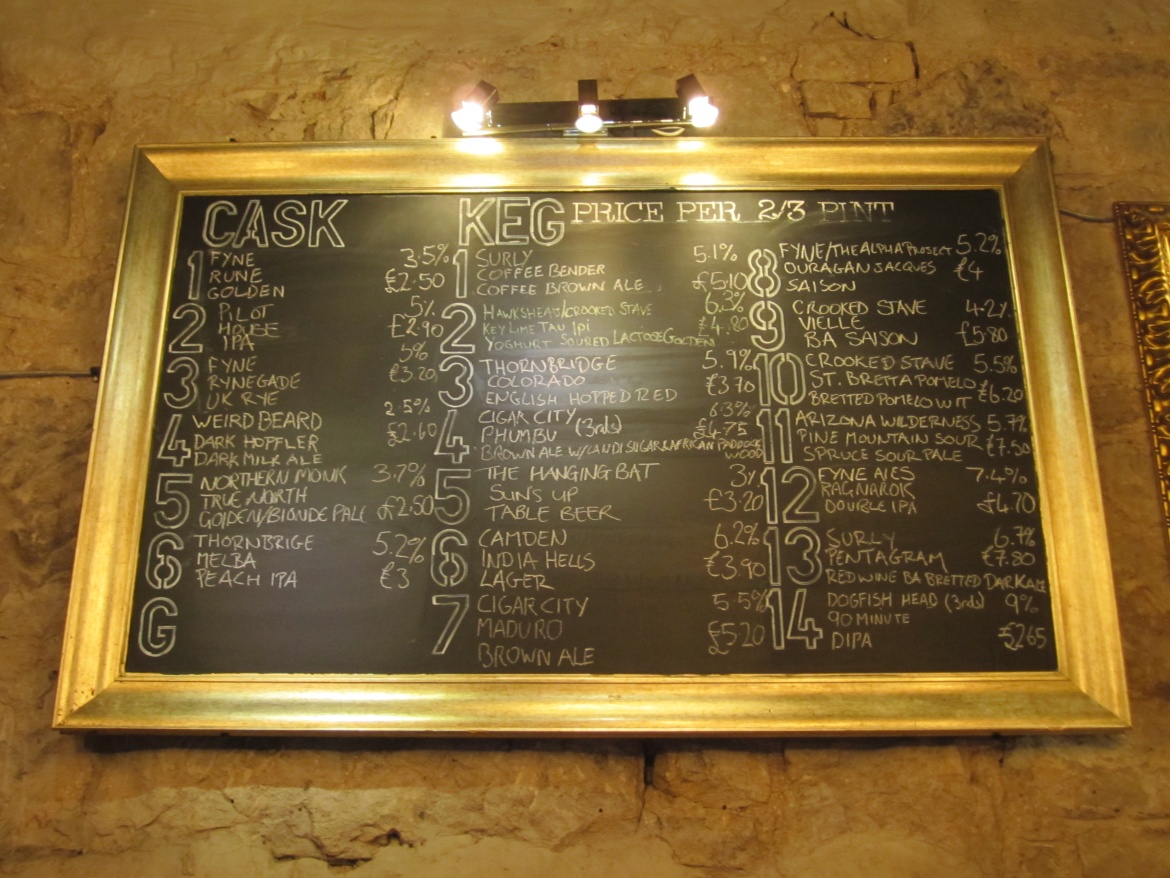 CASK
1 FYNE 3.5%
RUNE £2.50
GOLDEN
2 PILOT 5%
HOUSE £2.90
IPA
3 FYNE 5%
RYNEGADE £3.20
UK RYE
4 WEIRD BEARD 2.5%
DARK HOPFLER £2.60
DARK MILK ALE
5 NORTHERN MONK 3.7%
TRUE NORTH £2.50
GOLDEN/BLONDE PALE
6 THORNBRIGE 5.2%
MELBA £3
PEACH IPA
G
KEG PRICE PER 2/3 PINT
1 SURLY 5.1%
COFFEE BENDER £5.10
COFFEE BROWN ALE
2 HAWKSHEAD/CROOKED STAVE 6.3%
KEY LIME TAU IPI £4.80
YOGHURT SOURED LACTOSE GOLDEN
3 THORNBRIDGE 5.9%
COLORADO £3.70
ENGLISH HOPPED RED
4 CIGAR CITY 6.3%
PHUMBU (3rds) £4.75
BROWN ALE W/CANDI SUGAR & AFRICAN PADDOCK WOOD
5 THE HANGING BAT 3%
SUN'S UP £3.20
TABLE BEER
6 CAMDEN 6.2%
INDIA HELLS £3.90
LAGER
7 CIGAR CITY 5.5%
MADURO £5.20
BROWN ALE
8 FYNE/THE ALPHA PROJECT 5.2%
OURAGAN JACQUES £4
SAISON
9 CROOKED STAVE 4.2%
VIELLE £5.80
BA SAISON
10 CROOKED STAVE 5.5%
ST. BRETTA POMELO £6.20
BRETTED POMELO WIT
11 ARIZONA WILDERNESS 5.7%
PINE MOUNTAIN SOUR £7.50
SPRUCE SOUR PALE
12 FYNE ALES 7.4%
RAGNAROK £4.70
DOUBLE IPA
13 SURLY 6.7%
PENTAGRAM £7.80
RED WINE BA BRETTED DARK ALE
14 DOGFISH HEAD (3rds) 9%
90 MINUTE
DIPA £5.265